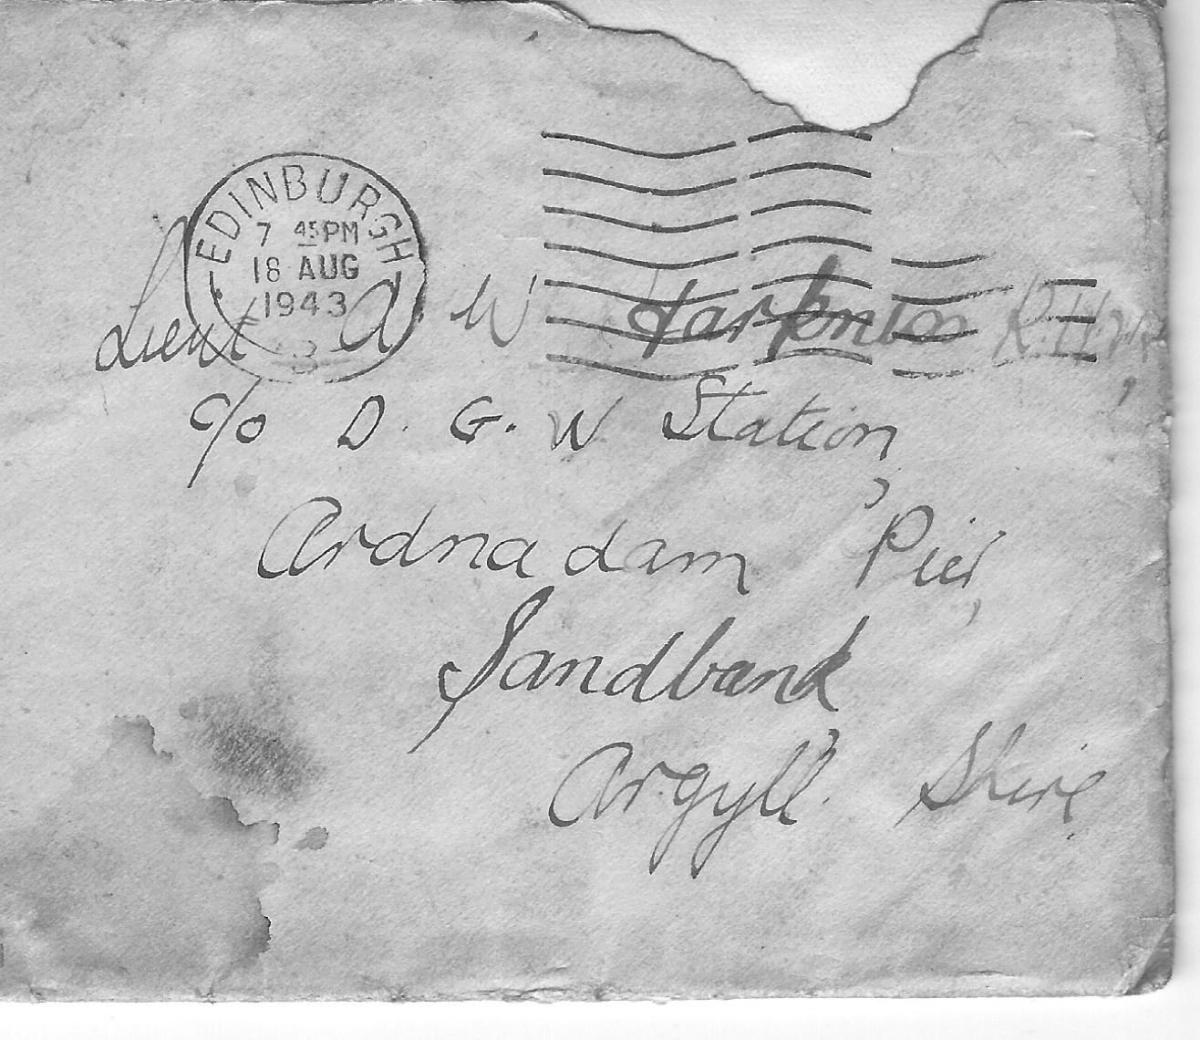 EDINBURGH
7 45PM
18 AUG
1943
Lieut A W
c/o D. G. W Station,
Ardnadam Pier,
Sandbank,
Argyll Shire